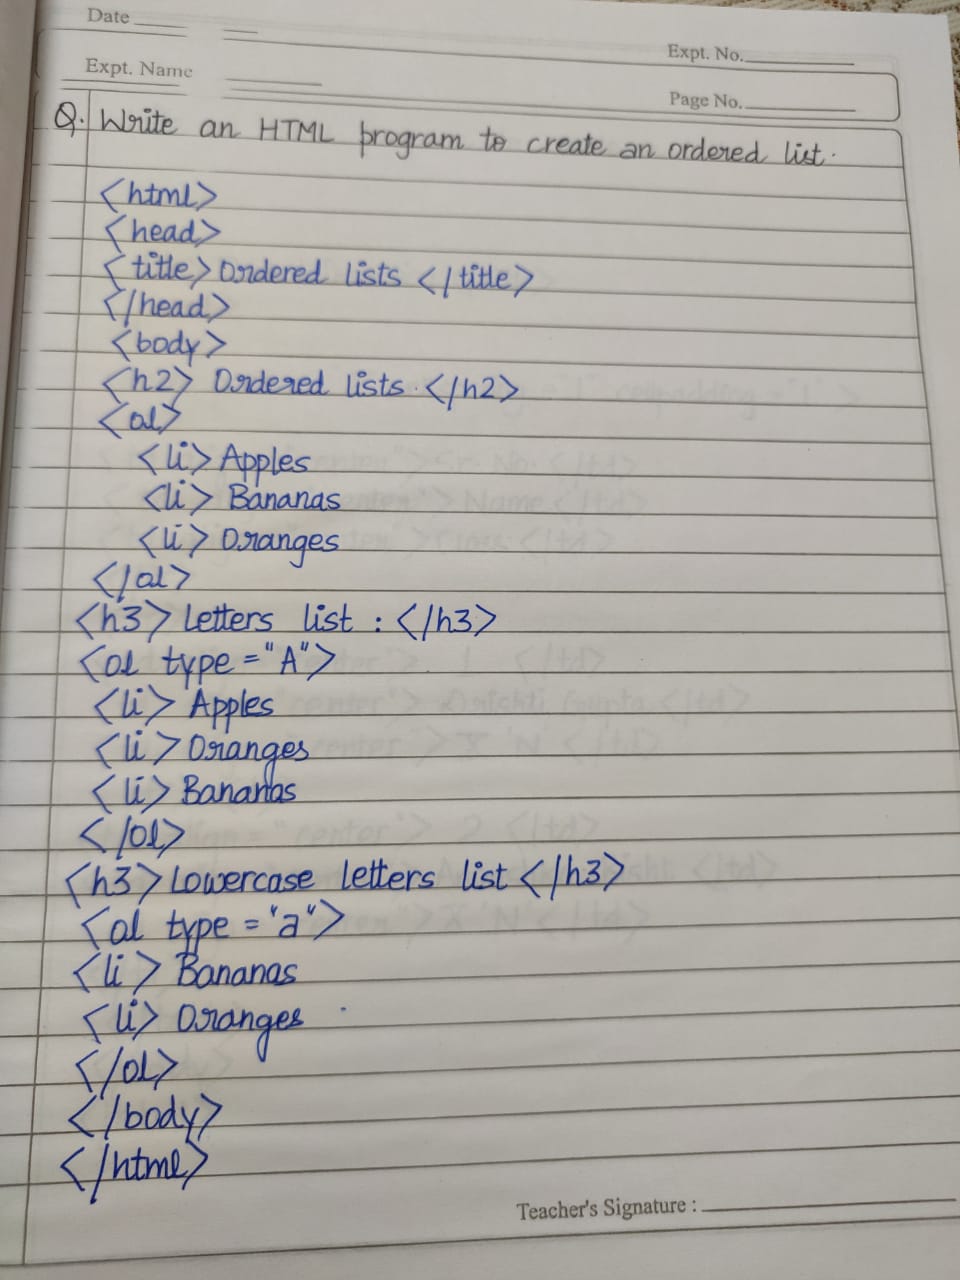 Date
Expt. No.
Expt. Name
Page No.
Q. Write an HTML program to create an ordered list.
<html>
<head>
<title> Ordered lists </title>
</head>
<body>
<h2> Ordered lists. </h2>
<ol>
<li> Apples
<li> Bananas
<li> Oranges
</ol>
<h3> Letters list : </h3>
<ol type = "A">
<li> Apples
<li> Oranges
<li> Bananas
</ol>
<h3> Lowercase letters list </h3>
<ol type = "a">
<li> Bananas
<li> Oranges
</ol>
</body>
</html>
Teacher's Signature :